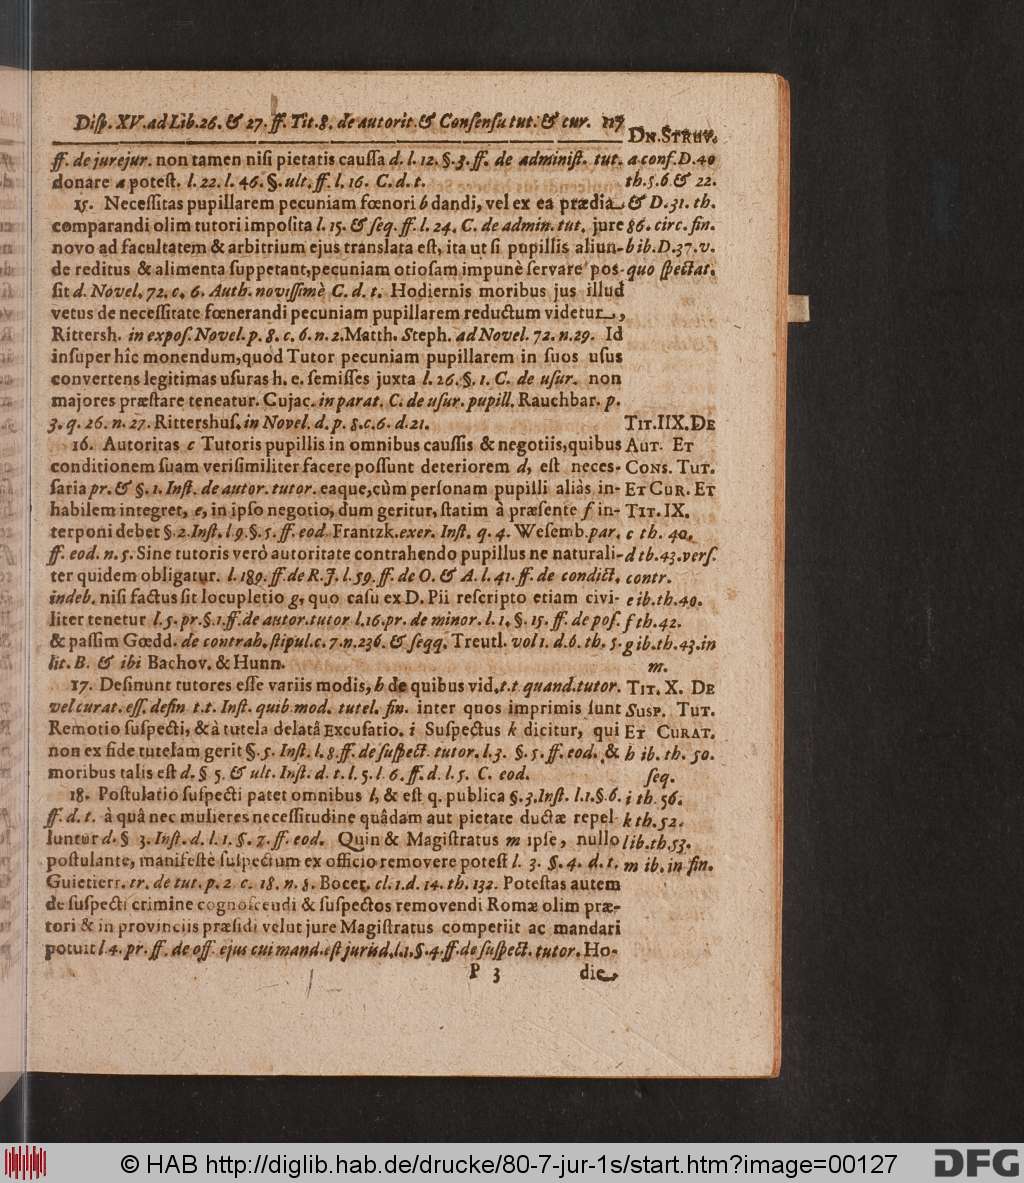 Disp. XV. ad Lib. 26. & 27. ff. Tit. 8. de autorit. & Consensu tut. & cur. 117
ff. de jurejur. non tamen nisi pietatis caussa d. l. 12. §. 3. ff. de administ. tut.
donare a potest. l. 22. l. 46. §. ult. ff. l. 16. C. d. t.
15. Necessitas pupillarem pecuniam fœnori b dandi, vel ex ea prædia
comparandi olim tutori imposita l. 15. & seq. ff. l. 24. C. de admin. tut. jure
novo ad facultatem & arbitrium ejus translata est, ita ut si pupillis aliun-
de reditus & alimenta suppetant, pecuniam otiosam impunè servare pos-
sit d. Novel. 72. c. 6. Auth. novissimè C. d. t. Hodiernis moribus jus illud
vetus de necessitate fœnerandi pecuniam pupillarem reductum videtur,
Rittersh. in expos. Novel. p. 8. c. 6. n. 2. Matth. Steph. ad Novel. 72. n. 29. Id
insuper hîc monendum, quòd Tutor pecuniam pupillarem in suos usus
convertens legitimas usuras h. e. semisses juxta l. 26. §. 1. C. de usur. non
majores præstare teneatur. Cujac. in parat. C. de usur. pupill. Rauchbar. p.
3. q. 26. n. 27. Rittershus. in Novel. d. p. 8. c. 6. d. 21.
16. Autoritas c Tutoris pupillis in omnibus caussis & negotiis, quibus
conditionem suam verisimiliter facere possunt deteriorem d, est neces-
saria pr. & §. 1. Inst. de autor. tutor. eaque, cùm personam pupilli aliàs in-
habilem integret, e, in ipso negotio, dum geritur, statim à præsente f in-
terponi debet §. 2. Inst. l 9. §. 5. ff. eod. Frantzk. exer. Inst. q. 4. Wesemb. par.
ff. eod. n. 5. Sine tutoris verò autoritate contrahendo pupillus ne naturali-
ter quidem obligatur. l. 189. ff. de R. J. l. 59. ff. de O. & A. l. 41. ff. de condict.
indeb. nisi factus sit locupletio g, quo casu ex D. Pii rescripto etiam civi-
liter tenetur l. 5. pr. §. 1. ff. de autor. tutor l. 16. pr. de minor. l. 1. §. 15. ff. de pos.
& passim Gœdd. de contrah. stipul. c. 7. n. 236. & seqq. Treutl. vol 1. d. 6. th. 5.
lit. B. & ibi Bachov. & Hunn.
17. Desinunt tutores esse variis modis, h de quibus vid. t. t quand. tutor.
vel curat. ess. desin t. t. Inst. quib mod. tutel. fin. inter quos imprimis sunt
Remotio suspecti, & à tutela delatâ Excusatio. i Suspectus k dicitur, qui
non ex fide tutelam gerit §. 5. Inst. l. 8. ff. de suspect. tutor. l. 3. §. 5. ff. eod. &
moribus talis est d. § 5. & ult. Inst. d. t. l. 5. l 6. ff. d. l. 5. C. eod.
18. Postulatio suspecti patet omnibus l, & est q. publica §. 3. Inst. l. 1. §. 6.
ff. d. t. à quâ nec mulieres necessitudine quâdam aut pietate ductæ repel-
luntur d. § 3. Inst. d. l. 1. §. 7. ff. eod. Quin & Magistratus m ipse, nullo
postulante, manifestè suspectum ex officio removere potest l. 3. §. 4. d. t.
Gutierr. tr. de tut. p. 2 c. 18. n. 8. Bocer. cl. 1. d. 14. th. 132. Potestas autem
de suspecti crimine cognoscendi & suspectos removendi Romæ olim præ-
tori & in provinciis præsidi velut jure Magistratus competiit ac mandari
potuit l 4. pr. ff. de off. ejus cui mand. est jurisd. l. 1. §. 4. ff. de suspect. tutor. Ho-
P 3 die,
DN. STRUV.
a conf. D. 40
th. 5. 6 & 22.
& D. 31. th.
86. circ. fin.
b ib. D. 37. v.
quo spectat.
TIT. IIX. DE
AUT. ET
CONS. TUT.
ET CUR. ET
TIT. IX.
c th. 40.
d th. 43. vers.
contr.
e ib. th. 40.
f th. 42.
g ib. th. 43. in
m.
TIT. X. DE
SUSP. TUT.
ET CURAT.
h ib. th. 50.
seq.
i th. 56.
k th. 52.
l ib. th. 53.
m ib. in fin.
© HAB http://diglib.hab.de/drucke/80-7-jur-1s/start.htm?image=00127
DFG